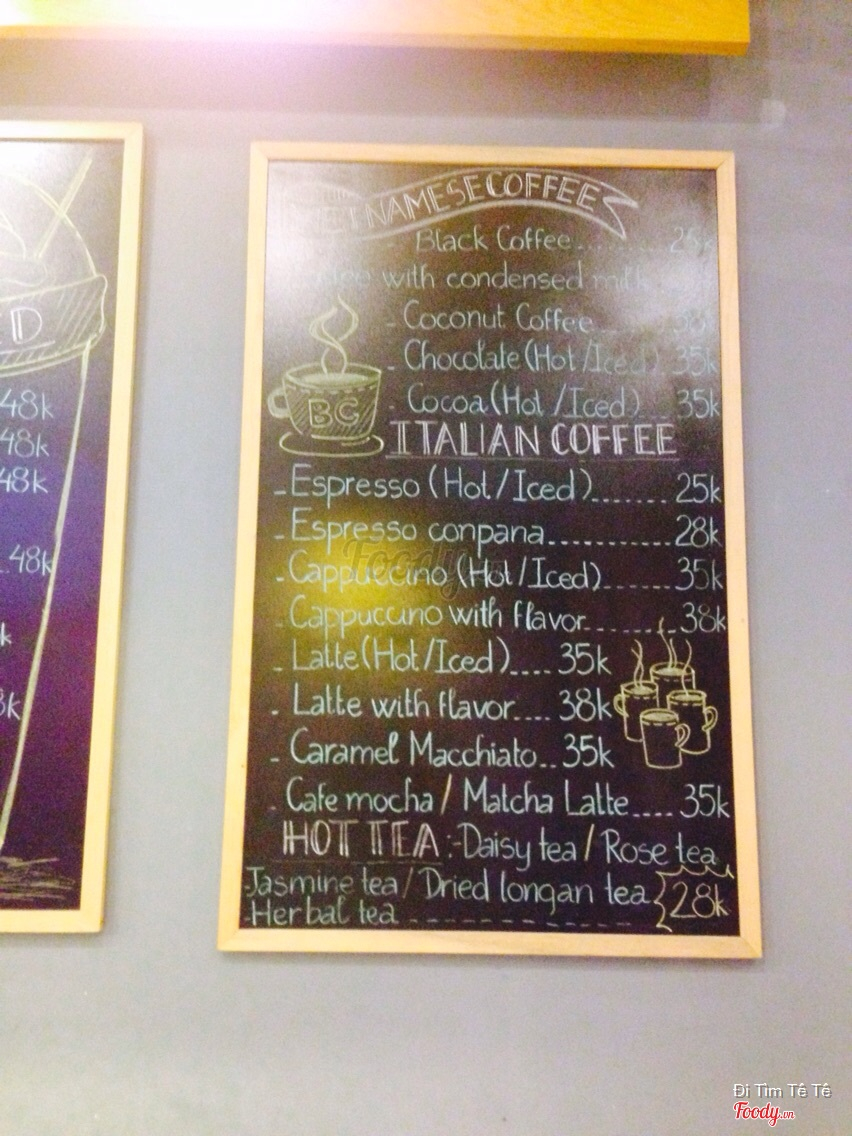 ED
48k
48k
48k
48k
NAMESE COFFEE
Black Coffee......... 25k
with condensed milk
- Coconut Coffee
- Chocolate (Hot/Iced) 35k
- Cocoa (Hot/Iced)... 35k
BC
ITALIAN COFFEE
- Espresso (Hot/Iced)....... 25k
- Espresso conpana............ 28k
- Cappuccino (Hot/Iced)....... 35k
- Cappuccino with flavor........ 38k
- Latte (Hot/Iced).... 35k
- Latte with flavor.... 38k
- Caramel Macchiato.. 35k
- Cafe mocha / Matcha Latte.... 35k
HOT TEA :-Daisy tea / Rose tea
-Jasmine tea / Dried longan tea
28k
-Herbal tea - - - - - - - - -
Foody.vn
Đi Tìm Tê Tê
Foody.vn